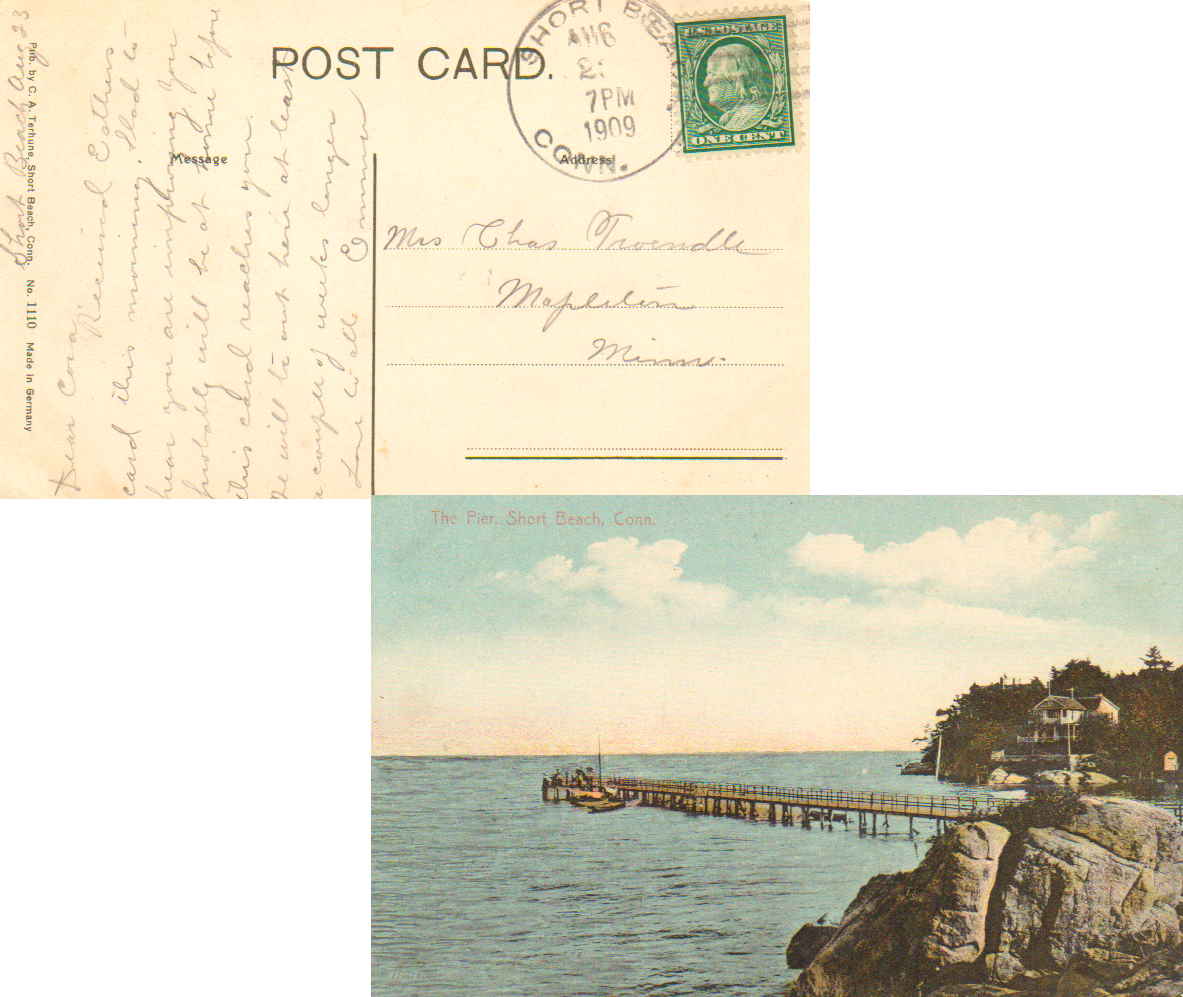 POST CARD.
SHORT BEACH
AUG
2
7PM
1909
CONN.
U.S. POSTAGE
ONE CENT
Message
Address
Mrs Chas Troendle
Mapleton
Minn.
Pub. by C. A. Terhune, Short Beach, Conn. No. 1110 Made in Germany
Short Beach Aug 23
Dear Cora,
Received Esthers
card this morning. Glad to
hear you are improving. You
probably will be at home before
this card reaches you.
We will be out here at least
a couple of weeks longer
Love to all. Emma
The Pier, Short Beach, Conn.